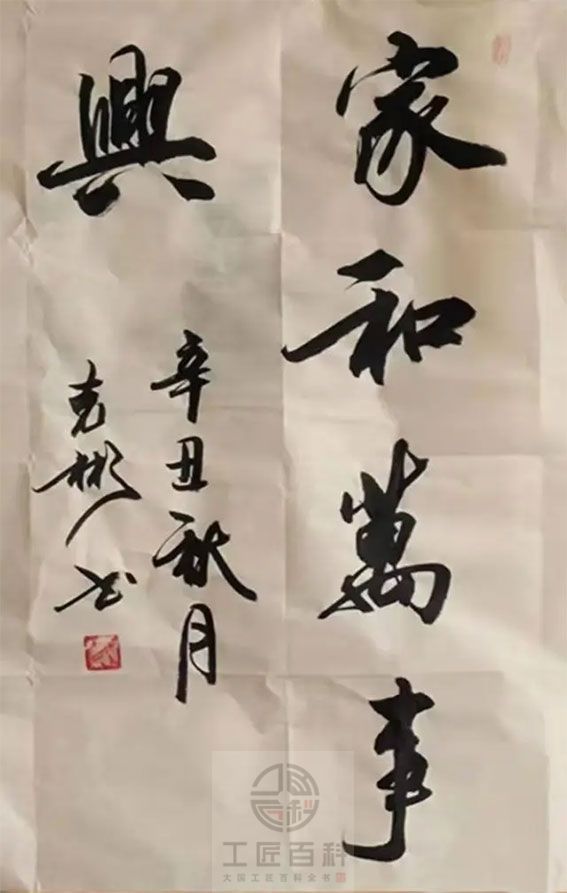 家和萬事
興
辛丑秋月
克彬书
工匠百科
大国工匠百科全书